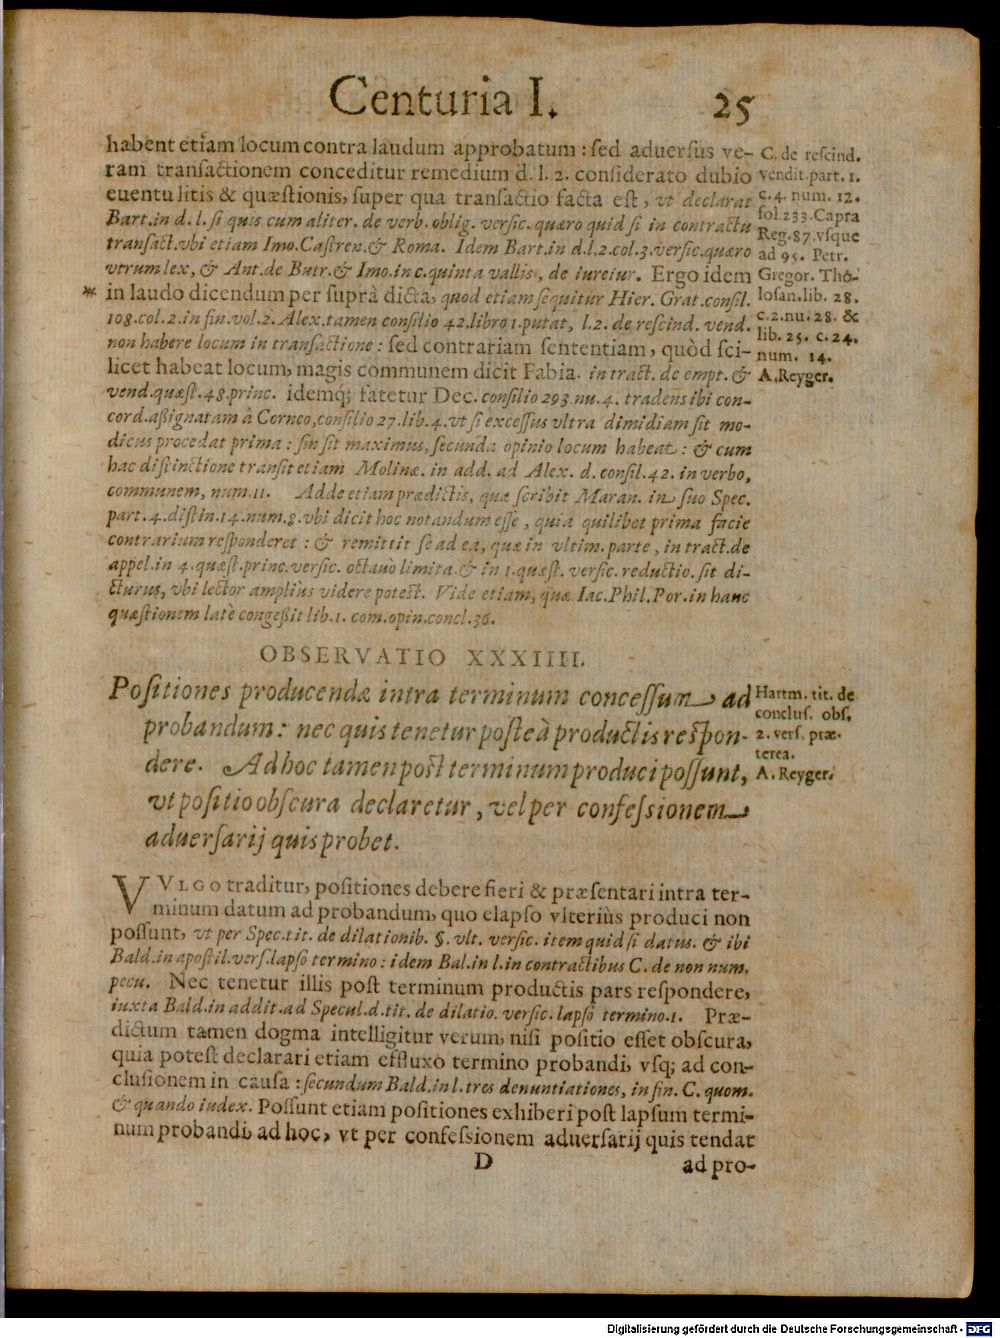 Centuria I. 25
habent etiam locum contra laudum approbatum : sed aduersus ve-
ram transactionem conceditur remedium d. l. 2. considerato dubio
euentu litis & quæstionis, super qua transactio facta est, vt declarat
Bart. in d. l. si quis cum aliter. de verb. oblig. versic. quæro quid si in contractu
transact. vbi etiam Imo. Castren. & Roma. Idem Bart. in d. l. 2. col. 3. versic. quæro
vtrum lex, & Ant. de Butr. & Imo. in c. quinta vallis, de iureiur. Ergo idem
* in laudo dicendum per suprà dicta, quod etiam sequitur Hier. Grat. consil.
108. col. 2. in fin. vol. 2. Alex. tamen consilio 42. libro 1. putat, l. 2. de rescind. vend.
non habere locum in transactione : sed contrariam sententiam, quòd sci-
licet habeat locum, magis communem dicit Fabia. in tract. de empt. &
vend. quæst. 48. princ. idemq; fatetur Dec. consilio 293. nu. 4. tradens ibi con-
cord. assignatam à Corneo, consilio 27. lib. 4. vt si excessus vltra dimidiam sit mo-
dicus procedat prima : sin sit maximus, secunda opinio locum habeat : & cum
hac distinctione transit etiam Molinæ. in add. ad Alex. d. consil. 42. in verbo,
communem, num. 11. Adde etiam prædictis, quæ scribit Maran. in suo Spec.
part. 4. distin. 14. num. 8. vbi dicit hoc notandum esse, quia quilibet prima facie
contrarium responderet : & remittit se ad ea, quæ in vltim. parte, in tract. de
appel. in 4. quæst. princ. versic. octauò limita. & in 1. quæst. versic. reductio. sit di-
cturus, vbi lector ampliùs videre potest. Vide etiam, quæ Iac. Phil. Por. in hanc
quæstionem latè congessit lib. 1. com. opin. concl. 36.
C. de rescind.
vendit. part. 1.
c. 4. num. 12.
fol. 233. Capra
Reg. 87. vsque
ad 95. Petr.
Gregor. Tho-
losan. lib. 28.
c. 2. nu. 28. &
lib. 25. c. 24.
num. 14.
A. Reyger.
OBSERVATIO XXXIIII.
Positiones producendæ intra terminum concessum ad
probandum : nec quis tenetur posteà productis respon-
dere. Ad hoc tamen post terminum produci possunt,
vt positio obscura declaretur, vel per confessionem
aduersarij quis probet.
Hartm. tit. de
conclus. obs.
2. vers. præ-
terea.
A. Reyger.
VVLGO traditur, positiones debere fieri & præsentari intra ter-
minum datum ad probandum, quo elapso vlteriùs produci non
possunt, vt per Spec. tit. de dilationib. §. vlt. versic. item quid si datus. & ibi
Bald. in apostil. vers. lapso termino : idem Bal. in l. in contractibus C. de non num.
pecu. Nec tenetur illis post terminum productis pars respondere,
iuxta Bald. in addit. ad Specul. d. tit. de dilatio. versic. lapso termino. 1. Præ-
dictum tamen dogma intelligitur verum, nisi positio esset obscura,
quia potest declarari etiam effluxo termino probandi, vsq; ad con-
clusionem in causa : secundum Bald. in l. tres denuntiationes, in fin. C. quom.
& quando iudex. Possunt etiam positiones exhiberi post lapsum termi-
num probandi, ad hoc, vt per confessionem aduersarij quis tendat
D ad pro-
Digitalisierung gefördert durch die Deutsche Forschungsgemeinschaft - DFG